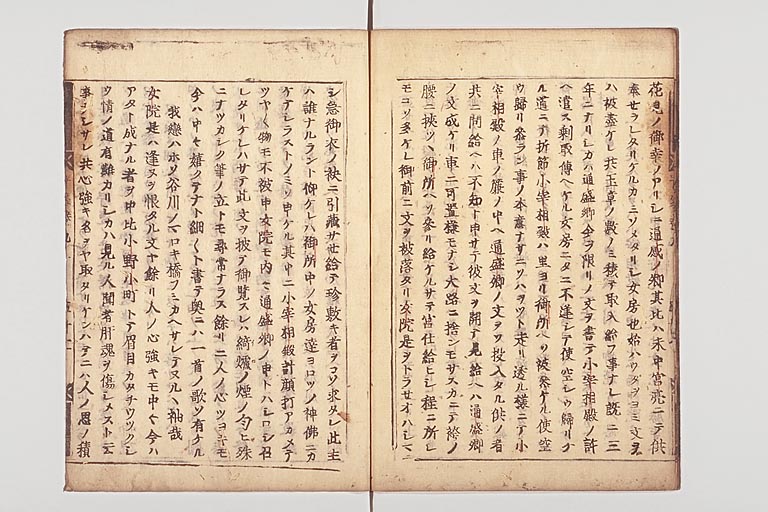 花見ノ御幸ノアリシニ通盛ノ卿其比ハ未中宮亮ニテ供
奉セラレタリケルカミソメタリシ女房也始ハウタヲヨミ文ヲ
ハ被盡ケレ共玉章ノ數ノミ積テ取入給フ事ナシ既ニ三
年ニナリシカハ通盛卿今ヲ限リノ文ヲ書テ小宰相殿ノ許
ヘ遣ス剰取傳ヘケル女房ニタニ不逢シテ使空シウ歸リケ
ル道ニテ折節小宰相殿ハ里ヨリ御所ヘソ被参ケル使空
ウ歸リ参ラン事ノ本意ナサニソハヲツト走リ透ル樣ニテ小
宰相殿ノ車ノ簾ノ中ヘ通盛卿ノ文ヲソ投入タル供ノ者
共ニ問給ヘハ不知ト申サテ彼文ヲ開テ見給ヘハ通盛卿
ノ文成ケリ車ニ可置樣モナシ大路ニ捨ンモサスカニテ袴ノ
腰ニ挾ツヽ御所ヘソ参リ給ケルサテ宮仕給ヒシ程ニ所シ
モコソ多ケレ御前ニ文ヲ被落タリ女院是ヲトラサオハシマ
シ急御衣ノ袂ニ引藏サセ給テ珍敷キ者ヲコソ求タレ此主
ハ誰ナルラント仰ケレハ御所中ノ女房達ヨロツノ神佛ニカ
ケテシラストノミソ申ケル其中ニ小宰相殿計顔打アカメテ
ツヤ〱物モ不被申女院モ内々通盛卿ノ申トハシロシ召
レタリケレハサテ此文ヲ披テ御覽スレハ綺爐ノ煙ノ匂ヒ殊
ニナツカシク筆ノ立トモ尋常ナラス餘リニ人ノ心ツヨキモ
今ハ中々嬉クテナト細々ト書テ奥ニハ一首ノ歌ソ有ケル
我戀ハホソ谷川ノマロキ橋フミカヘサレテヌルヽ袖哉
女院是ハ逢ヌヲ恨タル文ヤ餘リ人ノ心強キモ中々今ハ
アタト成ナル者ヲ中比小野小町トテ眉目カタチウツクシ
ク情ノ道有難カリシカハ見ル人聞者肝魂ヲ傷シメスト云
事ナシサレ共心強キ名ヲヤ取タリケンハテニハ人ノ思ノ積